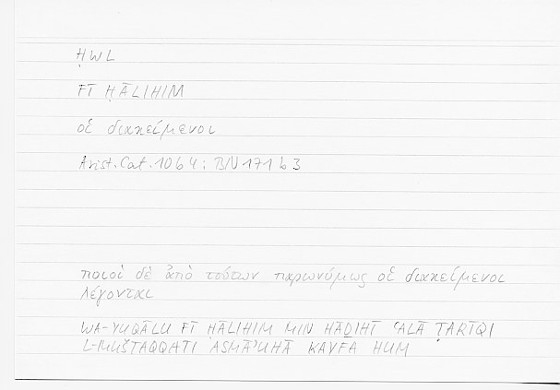 ḤWL
FĪ ḤĀLIHIM
οἱ διακείμενοι
Arist. Cat. 10b4 : BN 171b3
ποιοὶ δὲ ἀπὸ τούτων παρωνύμως οἱ διακείμενοι
λέγονται
WA-YUQĀLU FĪ HĀLIHIM MIN HĀḎIHĪ ʿALĀ ṬARĪQI
L-MUŠTAQQATI ASMĀʾUHĀ KAYFA HUM